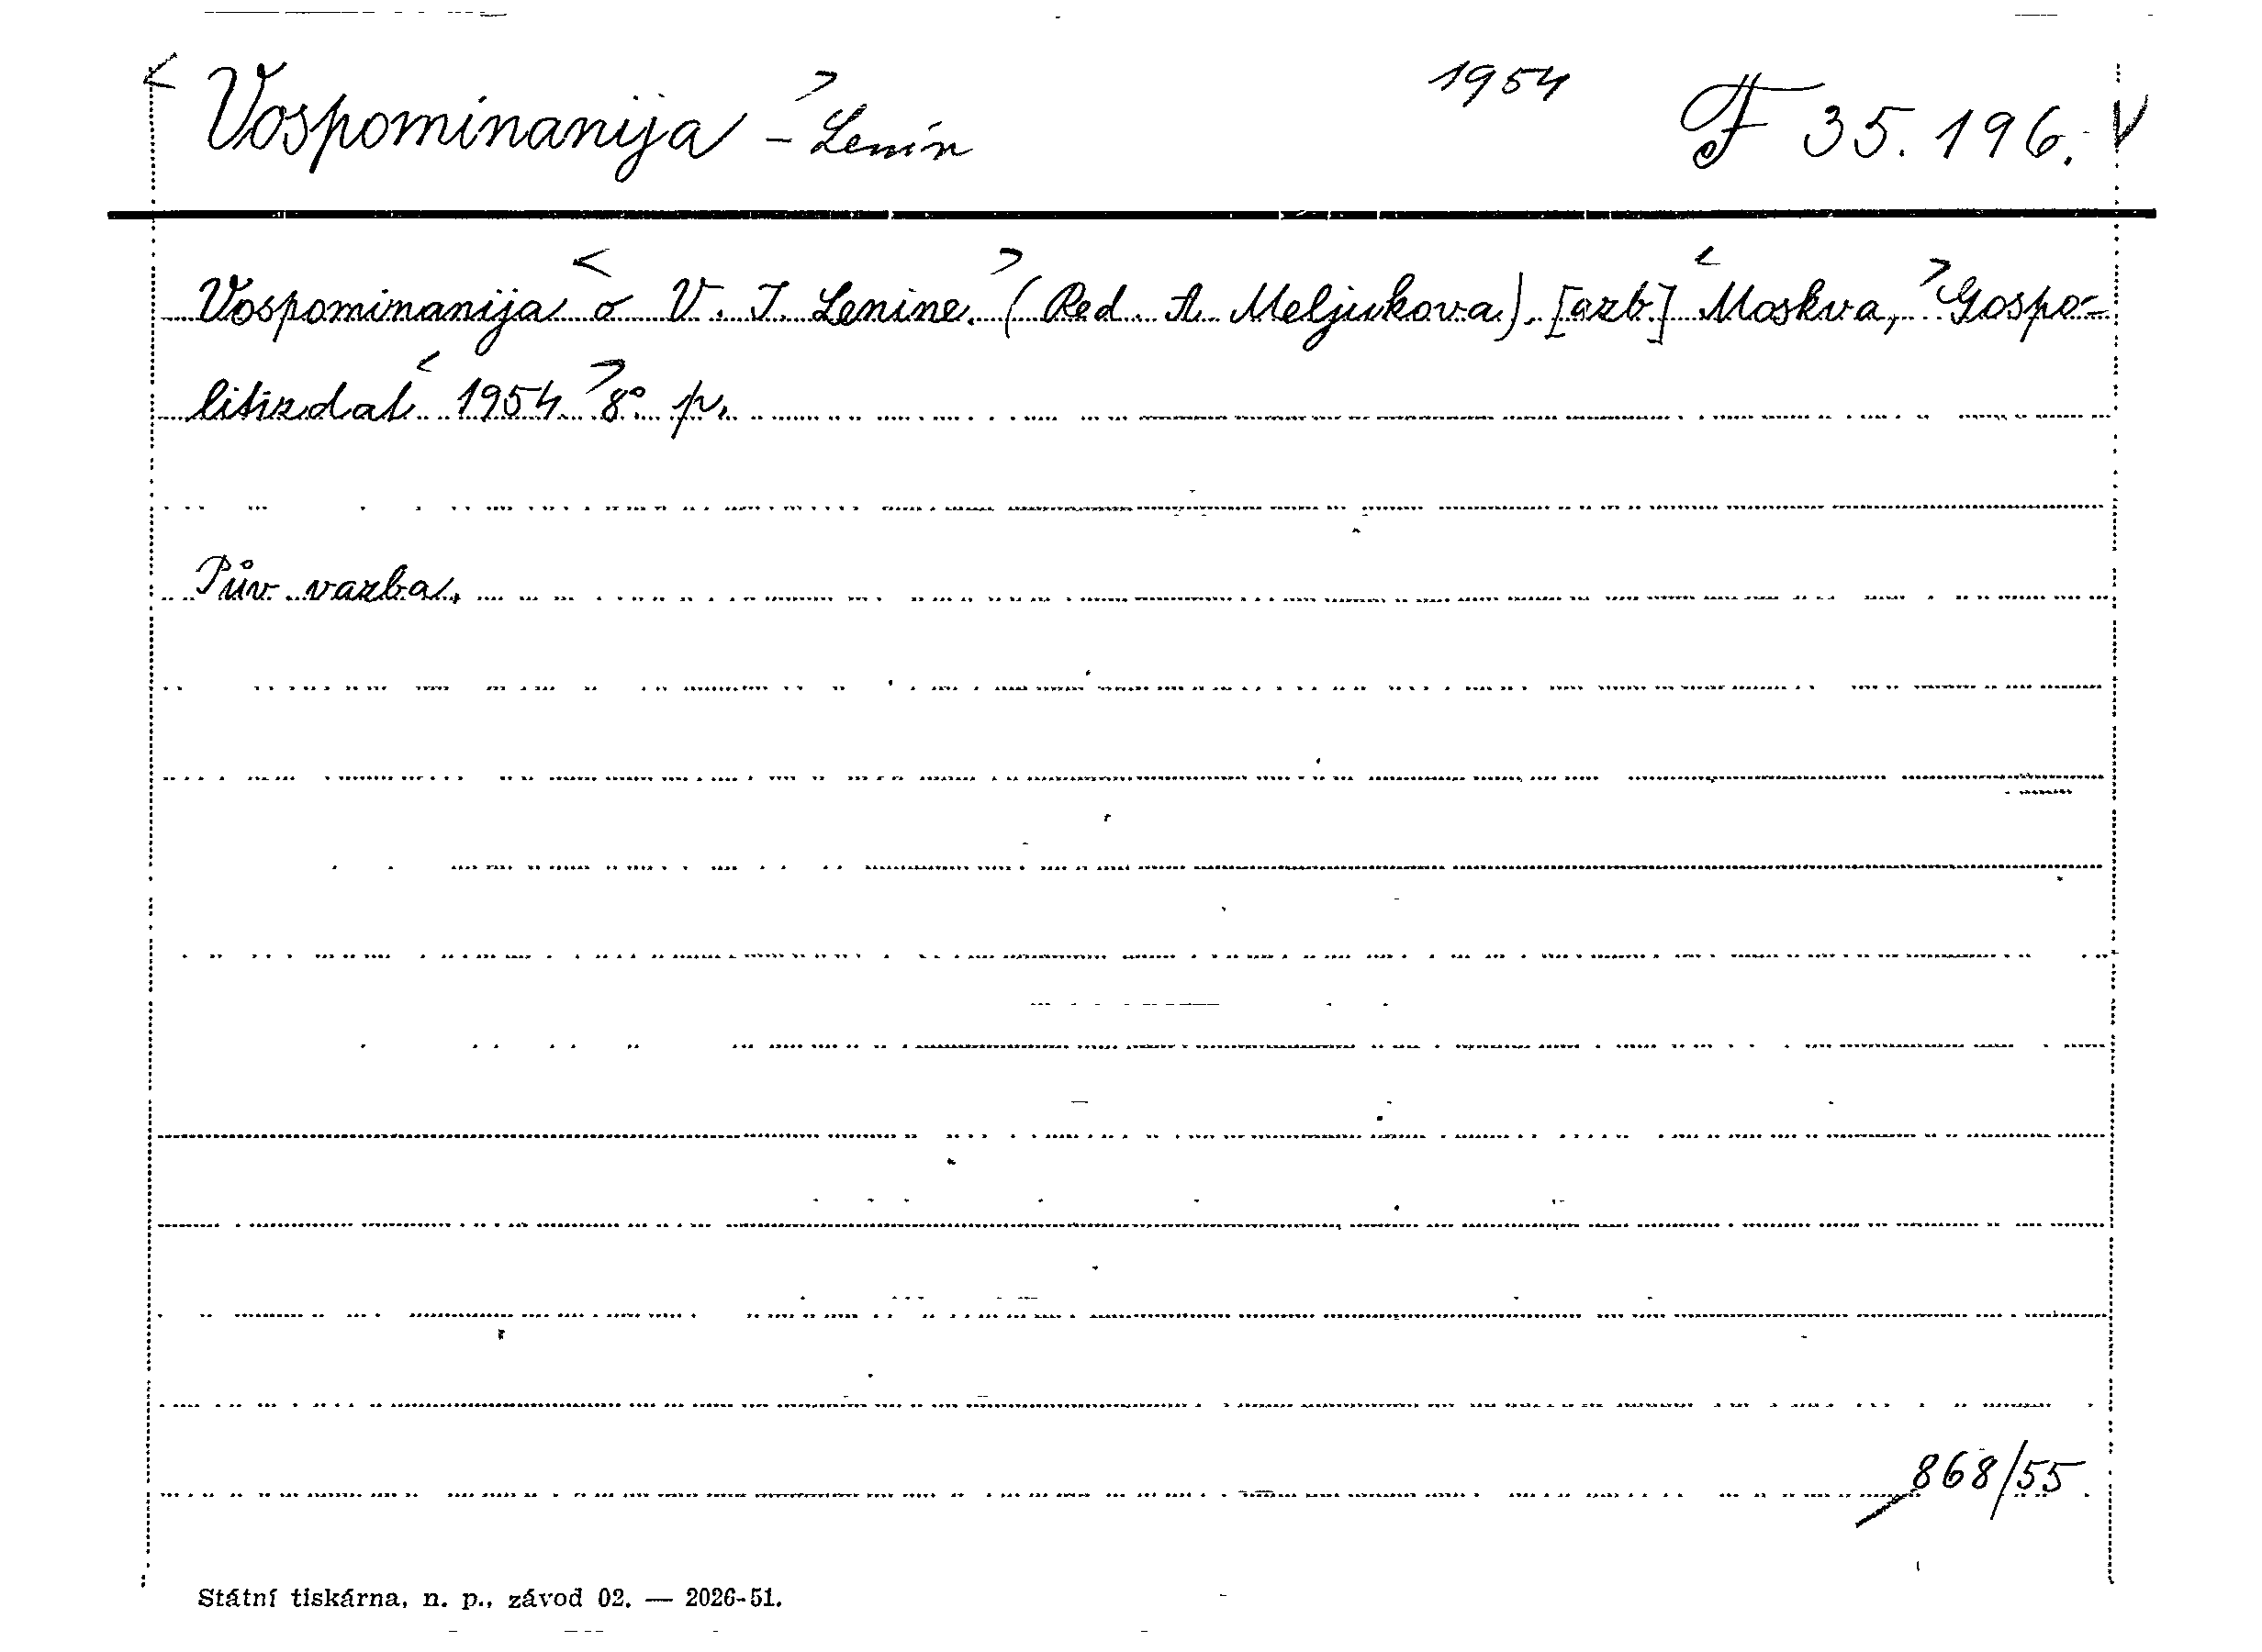 < Vospominanija > - Lenin 1954 F 35.196. V
Vospominanija < o V. I. Lenine. > (Red. A. Meljukova). [azb] < Moskva, > Gospo-
litizdat < 1954 > 8° p.
Pův. vazba.
868/55
Státní tiskárna, n. p., závod 02. — 2026-51.